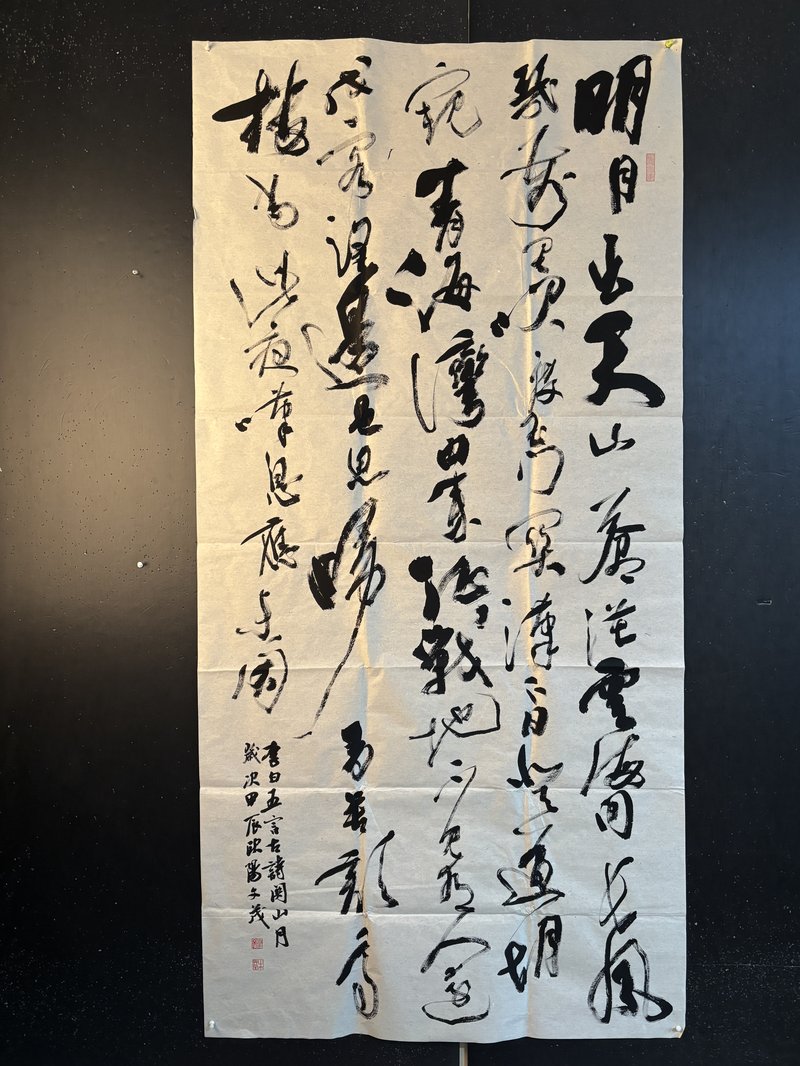 明月出天山蒼茫雲海間長風
幾萬里吹度玉門關漢下白登道胡
窺青海灣由來征戰地不見有人還
戍客望邊色思歸多苦顏高
樓當此夜嘆息應未閑
李白五言古詩関山月
歲次甲辰歐陽文茂